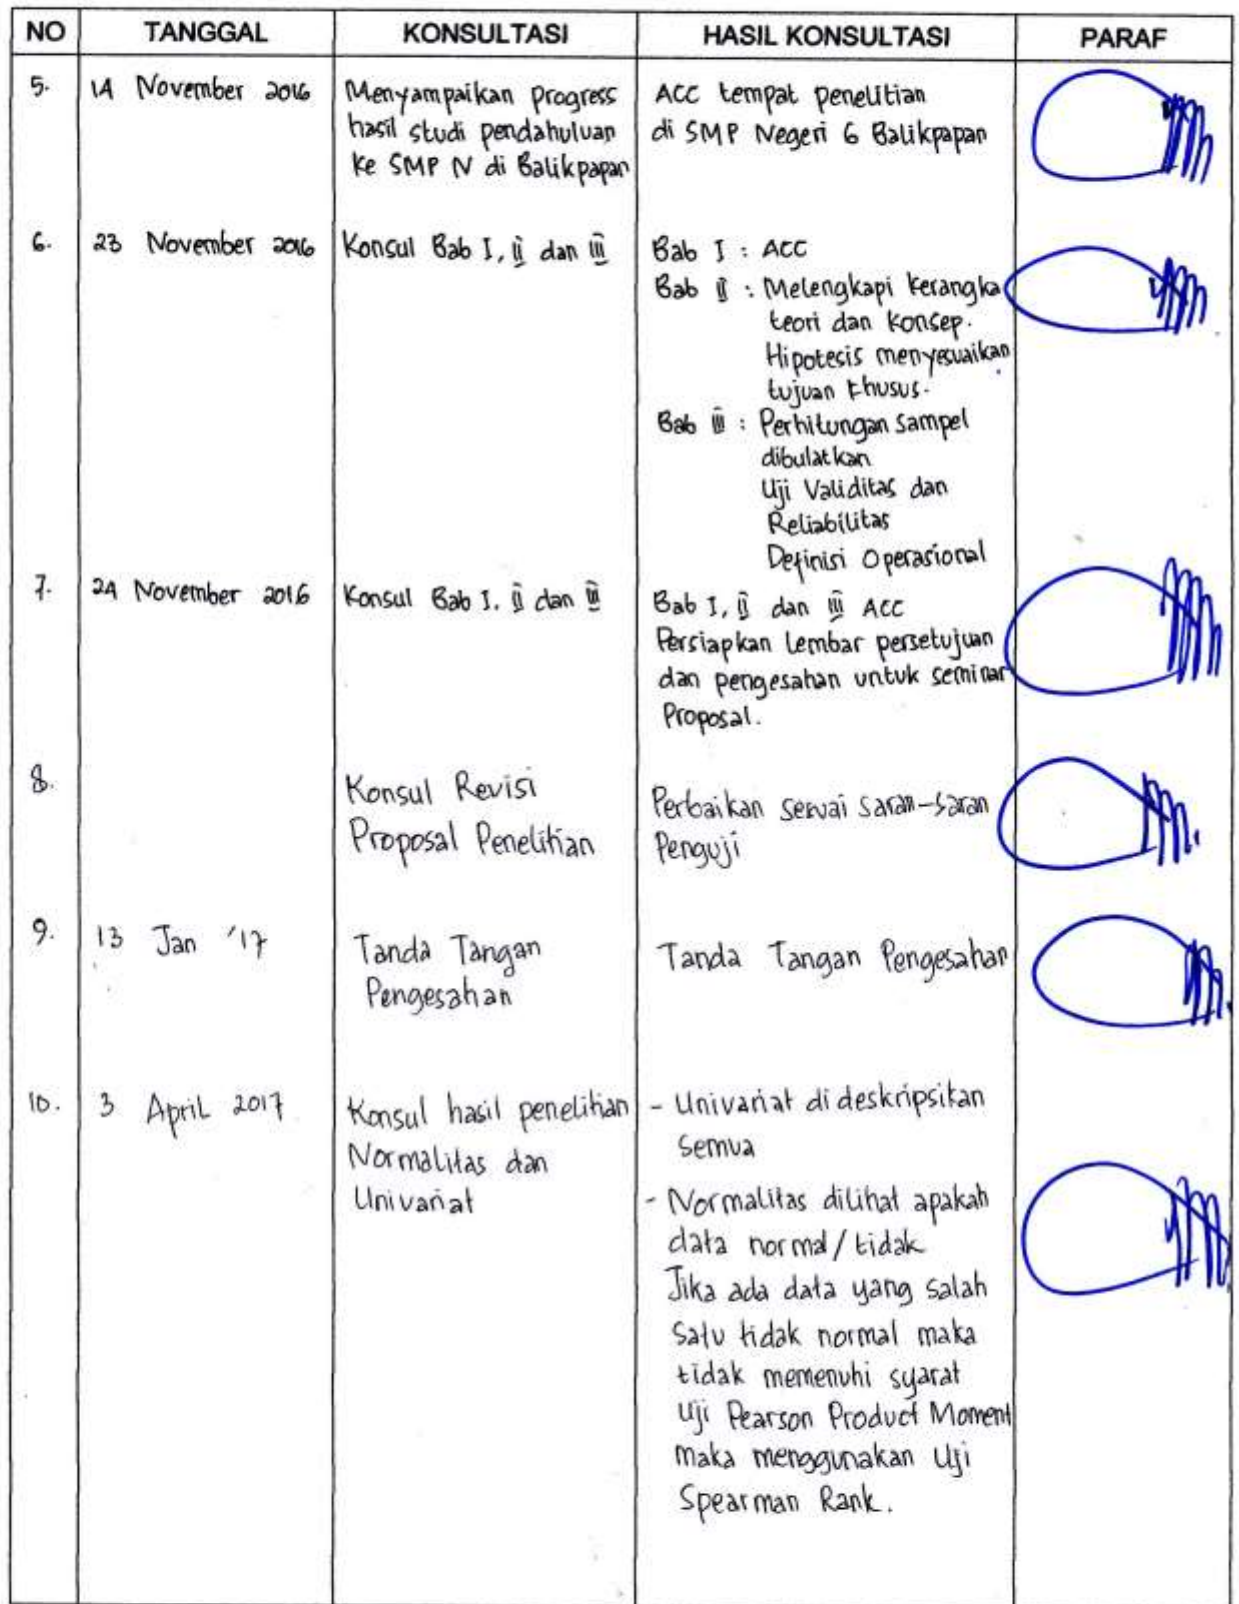 NO TANGGAL KONSULTASI HASIL KONSULTASI PARAF
5. 14 November 2016 Menyampaikan progress ACC tempat penelitian
hasil studi pendahuluan di SMP Negeri 6 Balikpapan
ke SMP N di Balikpapan
6. 23 November 2016 Konsul Bab I, II dan III Bab I : ACC
Bab II : Melengkapi kerangka
teori dan konsep.
Hipotesis menyesuaikan
tujuan khusus.
Bab III : Perhitungan sampel
dibulatkan
Uji Validitas dan
Reliabilitas
Definisi Operasional
7. 24 November 2016 Konsul Bab I, II dan III Bab I, II dan III ACC
Persiapkan lembar persetujuan
dan pengesahan untuk seminar
Proposal.
8. Konsul Revisi Perbaikan sesuai saran-saran
Proposal Penelitian Penguji
9. 13 Jan '17 Tanda Tangan Tanda Tangan Pengesahan
Pengesahan
10. 3 April 2017 Konsul hasil penelitian - Univariat di deskripsikan
Normalitas dan semua
Univariat - Normalitas dilihat apakah
data normal/tidak
Jika ada data yang salah
satu tidak normal maka
tidak memenuhi syarat
Uji Pearson Product Moment
maka menggunakan Uji
Spearman Rank.